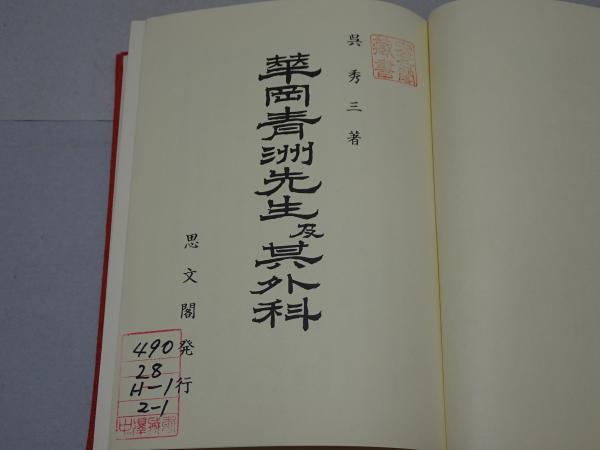 呉秀三著
華岡青洲先生及其外科
思文閣発行
490
28
H-1
2-1